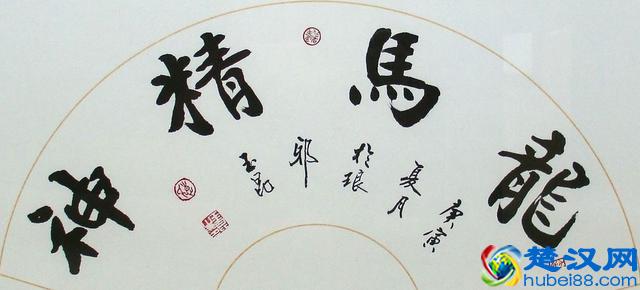 龍馬精神
庚寅
夏月
於琅
邪
玉昆
楚汉网
hubei88.com